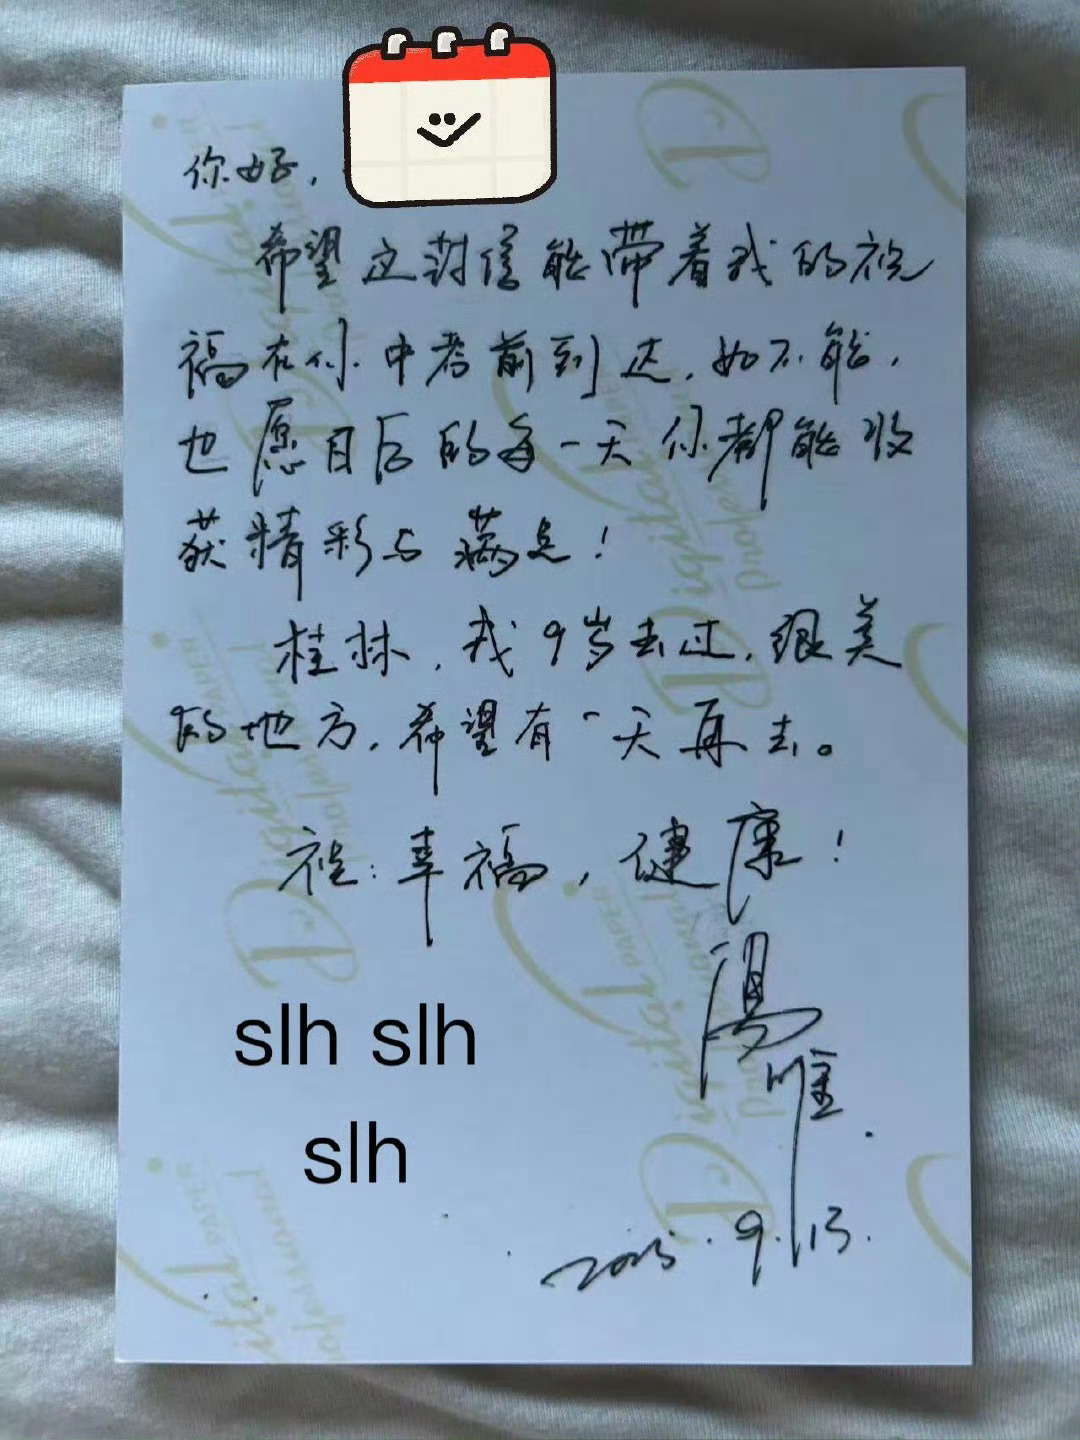 你好,
希望这封信能带着我的祝
福在你中考前到达,如不能,
也愿日后的每一天你都能收
获精彩与满足!
桂林,我9岁去过,很美
的地方,希望有一天再去。
祝:幸福,健康!
汤唯
2023.9.13.
slh slh
slh
Digital
PAPER
Professional